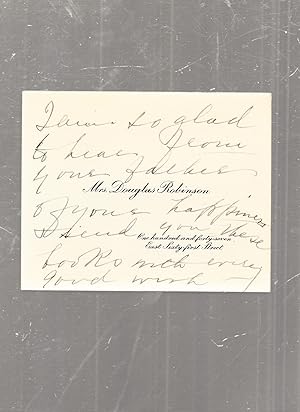 I am so glad
to hear from
your father
Mrs. Douglas Robinson
of your happiness
I send you these
One hundred and forty-seven
East Sixty-first Street
books with every
good wish